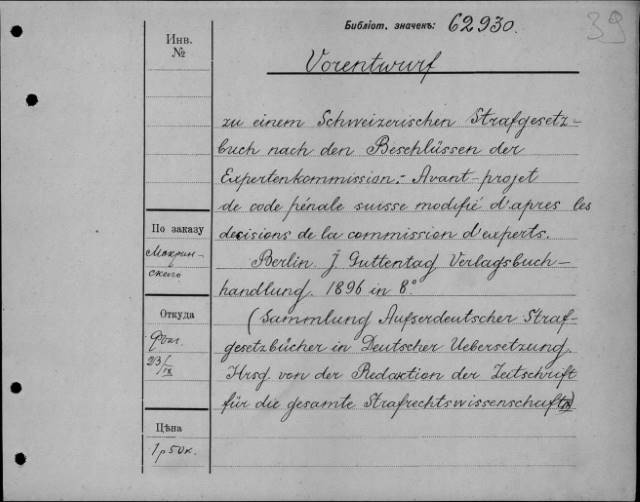 Библіот. значекъ: 62930.
39
Инв.
№
Vorentwurf
zu einem Schweizerischen Strafgesetz-
buch nach den Beschlüssen der
Expertenkommission.- Avant-projet
de code pénale suisse modifié d'apres les
decisions de la commission d'experts.
Berlin. J. Guttentag, Verlagsbuch-
handlung. 1896 in 8°.
(Sammlung Aufserdeutscher Straf-
gesetzbücher in Deutscher Uebersetzung.
Hrsg. von der Redaktion der Zeitschrift
für die gesamte Strafrechtswissenschaft
По заказу
Макрин-
скаго
Откуда
23/IX
Цѣна
1 р 50 к.